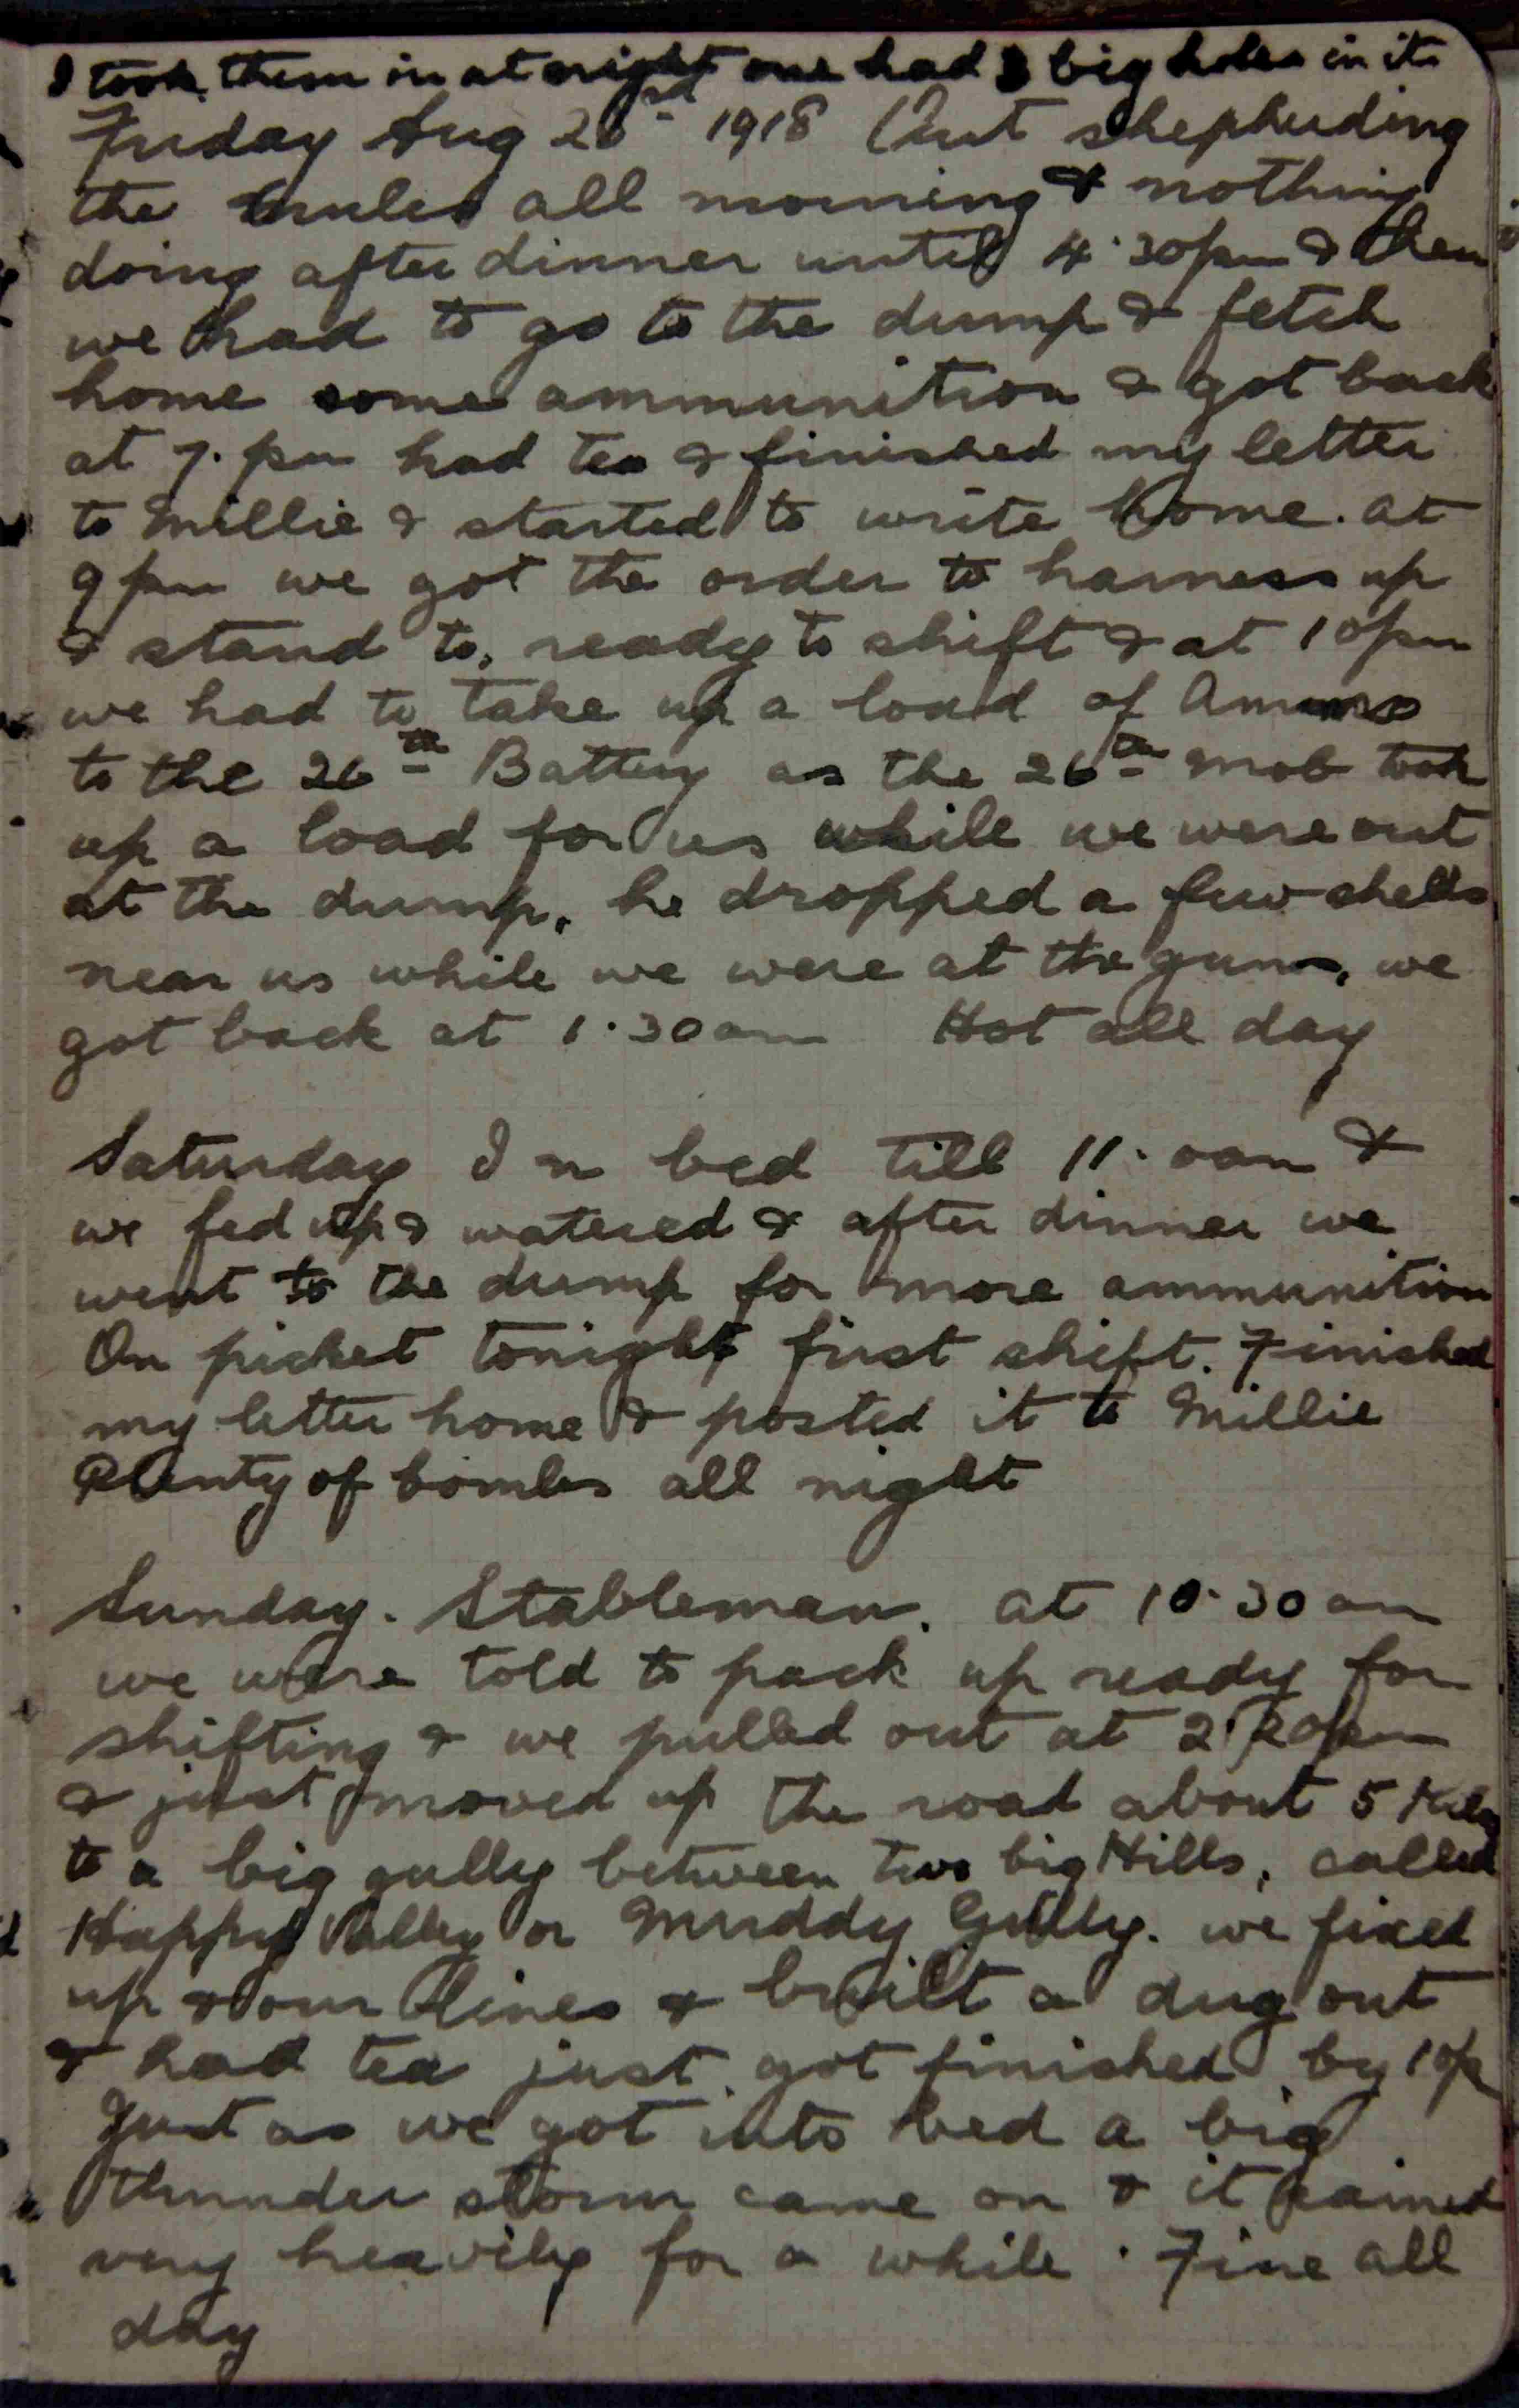 I took them in at night one had 3 big holes in it
Friday Aug 23rd 1918 Out shepherding
the mules all morning & nothing
doing after dinner until 4.30pm & then
we had to go to the dump & fetch
home some ammunition & got back
at 7.pm had tea & finished my letter
to Millie & started to write home. at
9pm we got the order to harness up
& stand to, ready to shift & at 10pm
we had to take up a load of Ammo
to the 26th Battery as the 26th mob took
up a load for us while we were out
at the dump. he dropped a few shells
near us while we were at the guns, we
got back at 1.30am Hot all day
Saturday In bed till 11.0am &
we fed up & watered & after dinner we
went to the dump for more ammunition
On picket tonight first shift. Finished
my letter home & posted it to Millie
Plenty of bombs all night
Sunday. Stableman. at 10.30am
we were told to pack up ready for
shifting & we pulled out at 2.20pm
& just moved up the road about 5 Kilos
to a big gully between two big Hills, called
Happy Valley or Muddy Gully. we fixed
up our lines & built a dug out
& had tea just got finished by 10p
Just as we got into bed a big
thunder storm came on & it rained
very heavily for a while. Fine all
day